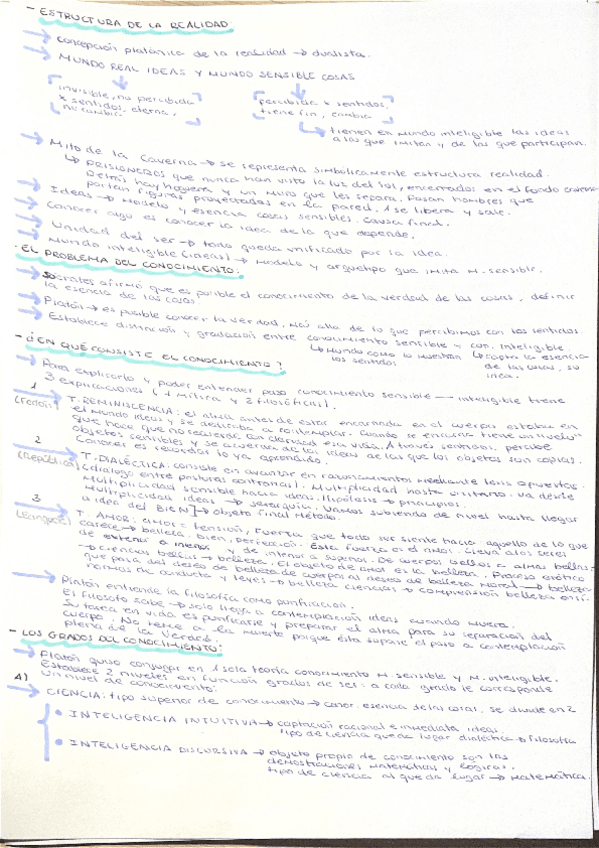 - ESTRUCTURA DE LA REALIDAD.
Concepción platónica de la realidad → dualista.
MUNDO REAL IDEAS Y MUNDO SENSIBLE COSAS
invisible, no percibida
x sentidos, eterna,
no cambia.
percibida x sentidos,
tiene fin, cambia
tienen en mundo inteligible las ideas
a las que imitan y de las que participan.
Mito de la Caverna → se representa simbólicamente estructura realidad.
PRISIONEROS que nunca han visto la luz del sol, encerrados en el fondo caverna
Detrás hay hoguera y un muro que les separa. Pasan hombres que
portan figuras proyectadas en la pared. 1 se libera y sale.
Ideas → modelo y esencia cosas sensibles. Causa final.
Conocer algo es conocer la idea de la que depende.
Unidad del ser → todo queda unificado por la idea.
Mundo inteligible (ideas) → modelo y arquetipo que imita M. sensible.
- EL PROBLEMA DEL CONOCIMIENTO:
Sócrates afirmó que es posible el conocimiento de la verdad de las cosas, definir
la esencia de las cosas.
Platón → es posible conocer la verdad, más allá de lo que percibimos con los sentidos
Establece distinción y gradación entre conocimiento sensible y con. inteligible.
Mundo como lo muestran
los sentidos
capta la esencia
de las cosas, su
idea.
- ¿EN QUÉ CONSISTE EL CONOCIMIENTO?
Para explicarlo y poder entender paso conocimiento sensible → inteligible tiene
3 explicaciones (1 mítica y 2 filosóficas).
1
(Fedón)
T. REMINISCENCIA: el alma antes de estar encarnada en el cuerpo estaba en
el mundo ideas y se dedicaba a contemplar. Cuando se encarna tiene un "velo"
que hace que no recuerde con claridad esa vida. A través sentidos, percibe
objetos sensibles y se acuerda de las ideas de las que los objetos son copias.
Conocer es recordar lo ya aprendido.
2
(República)
T. DIALÉCTICA: consiste en avanzar en razonamientos mediante tesis opuestas.
(diálogo entre posturas contrarias). Multiplicidad hasta unitario. va desde
multiplicidad sensible hacia ideas. Hipótesis → principios.
Multiplicidad ideas → jerarquía. Vamos subiendo de nivel hasta llegar
a idea del BIEN → objeto final método.
3
(Banquete)
T. AMOR: amor = tensión, fuerza que todo ser siente hacia aquello de lo que
carece → belleza, bien, perfección. Esta fuerza es el amor. Lleva a los seres
de externo a interno y de inferior a superior. De cuerpos bellos a almas bellas
→ ciencias bellas → belleza. El objeto de amor es la belleza. Proceso erótico
que pasa del deseo de belleza de cuerpos al deseo de belleza moral → belleza
normas de conducta y leyes → belleza ciencias → comprensión belleza en sí.
Platón entiende la filosofía como purificación.
El filósofo sabe → solo llega a contemplación ideas cuando muera.
Su tarea en vida es purificarse y preparar el alma para su separación del
cuerpo. No teme a la muerte porque ésta supone el paso a contemplación
plena de la verdad.
- LOS GRADOS DEL CONOCIMIENTO:
Platón quiso conjugar en 1 sola teoría conocimiento M. sensible y M. inteligible.
Establece 2 niveles en función grados de ser: a cada grado le corresponde
un nivel de conocimiento:
A)
CIENCIA: tipo superior de conocimiento → conor. esencia de las cosas, se divide en 2
• INTELIGENCIA INTUITIVA → captación racional e inmediata ideas.
tipo de ciencia que da lugar dialéctica → filosofía
• INTELIGENCIA DISCURSIVA → objeto propio de conocimiento son las
demostraciones matemáticas y lógicas.
tipo de ciencia al que da lugar → matemática.